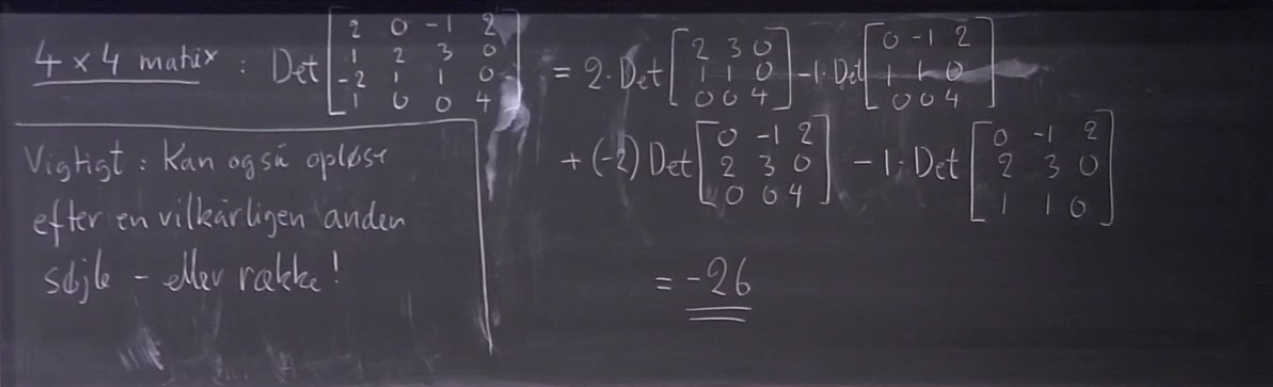 4 × 4 matrix : Det [2 0 -1 2; 1 2 3 0; -2 1 1 0; 1 0 0 4] = 2·Det [2 3 0; 1 1 0; 0 0 4] -1·Det [0 -1 2; 1 1 0; 0 0 4]
+ (-2) Det [0 -1 2; 2 3 0; 0 0 4] - 1·Det [0 -1 2; 2 3 0; 1 1 0]
= -26
Vigtigt : Kan også opløse
efter en vilkårligen anden
søjle - eller række!